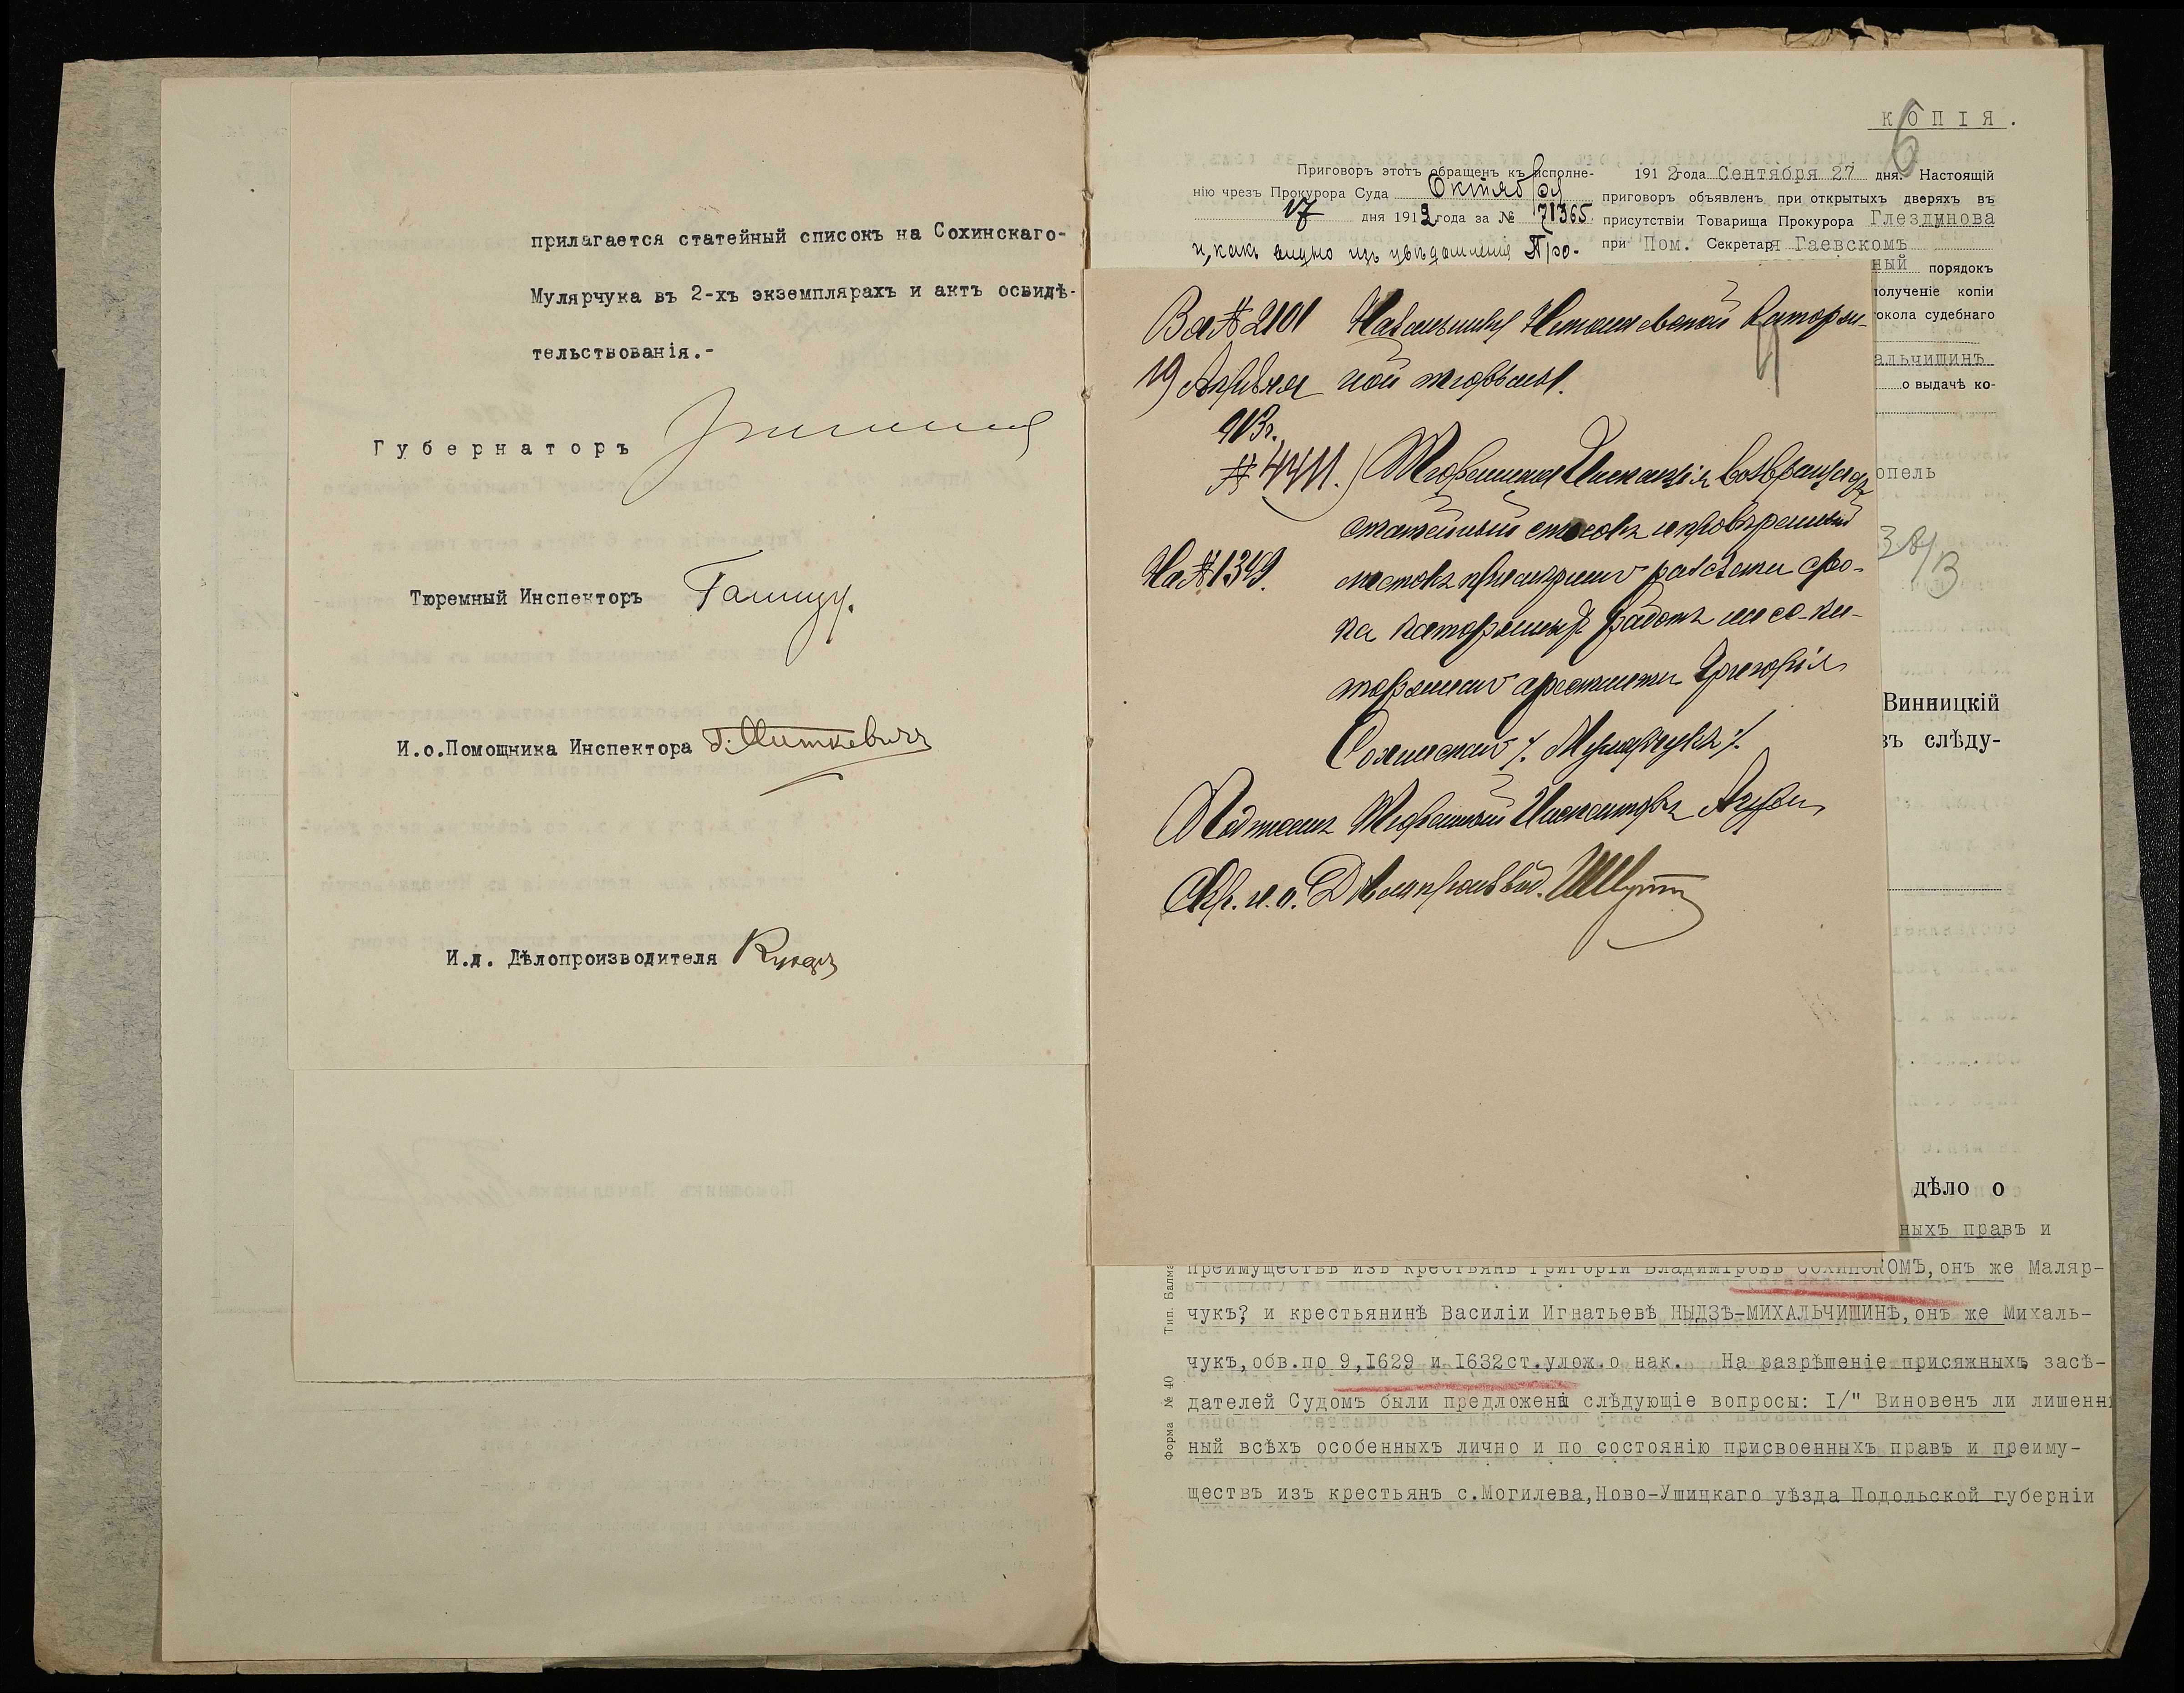 прилагается статейный списокъ на Сохинскаго-
Мулярчука въ 2-хъ экземплярахъ и актъ освидѣ-
тельствованія.-
Губернаторъ
Тюремный Инспекторъ
И.о.Помощника Инспектора Г. Миткевичъ
И.д. Дѣлопроизводителя
КОПІЯ.
6
Приговоръ этотъ обращенъ къ исполне-
нію чрезъ Прокурора Суда Октября
17 дня 1912 года за № 71365
и, какъ видно изъ увѣдомленія Про-
1912 года Сентября 27 дня. Настоящій
приговоръ объявленъ при открытыхъ дверяхъ въ
присутствіи Товарища Прокурора Глездунова
при Пом. Секретаря Гаевскомъ
ный порядокъ
получение копіи
окола судебнаго
альчишинъ
о выдачѣ ко-
опель
Винницкій
въ слѣду-
Вх № 2101
19 Апрѣля
913г.
№ 4411.
На № 1349.
Начальнику Николаевской Каторж-
ной тюрьмы.
Тюремная Инспекція возвращаетъ
статейный списокъ и провѣренный
листокъ примѣрнаго разсчета сро-
ка каторжныхъ работъ ссыльно-ка-
торжнаго арестанта Григорія
Сохинскаго /. Мулярчукъ /.
Подписалъ Тюремный Инспекторъ
Скр. и. о. Дѣлопроизвод.
дѣло о
ныхъ правъ и
преимуществъ изъ крестьянъ Григоріи Владиміровѣ СОХИНСКОМЪ,онъ же Маляр-
чукъ? и крестьянинѣ Василіи Игнатьевѣ НЫДЗѢ-МИХАЛЬЧИШИНѢ,онъ же Михаль-
чукъ,обв.по 9,I629 и I632ст.улож.о нак. На разрѣшеніе присяжныхъ засѣ-
дателей Судомъ были предложены слѣдующіе вопросы: I/" Виновенъ ли лишенн
ный всѣхъ особенныхъ лично и по состоянію присвоенныхъ правъ и преиму-
ществъ изъ крестьянъ с.Могилева,Ново-Ушицкаго уѣзда Подольской губерніи
Форма № 40